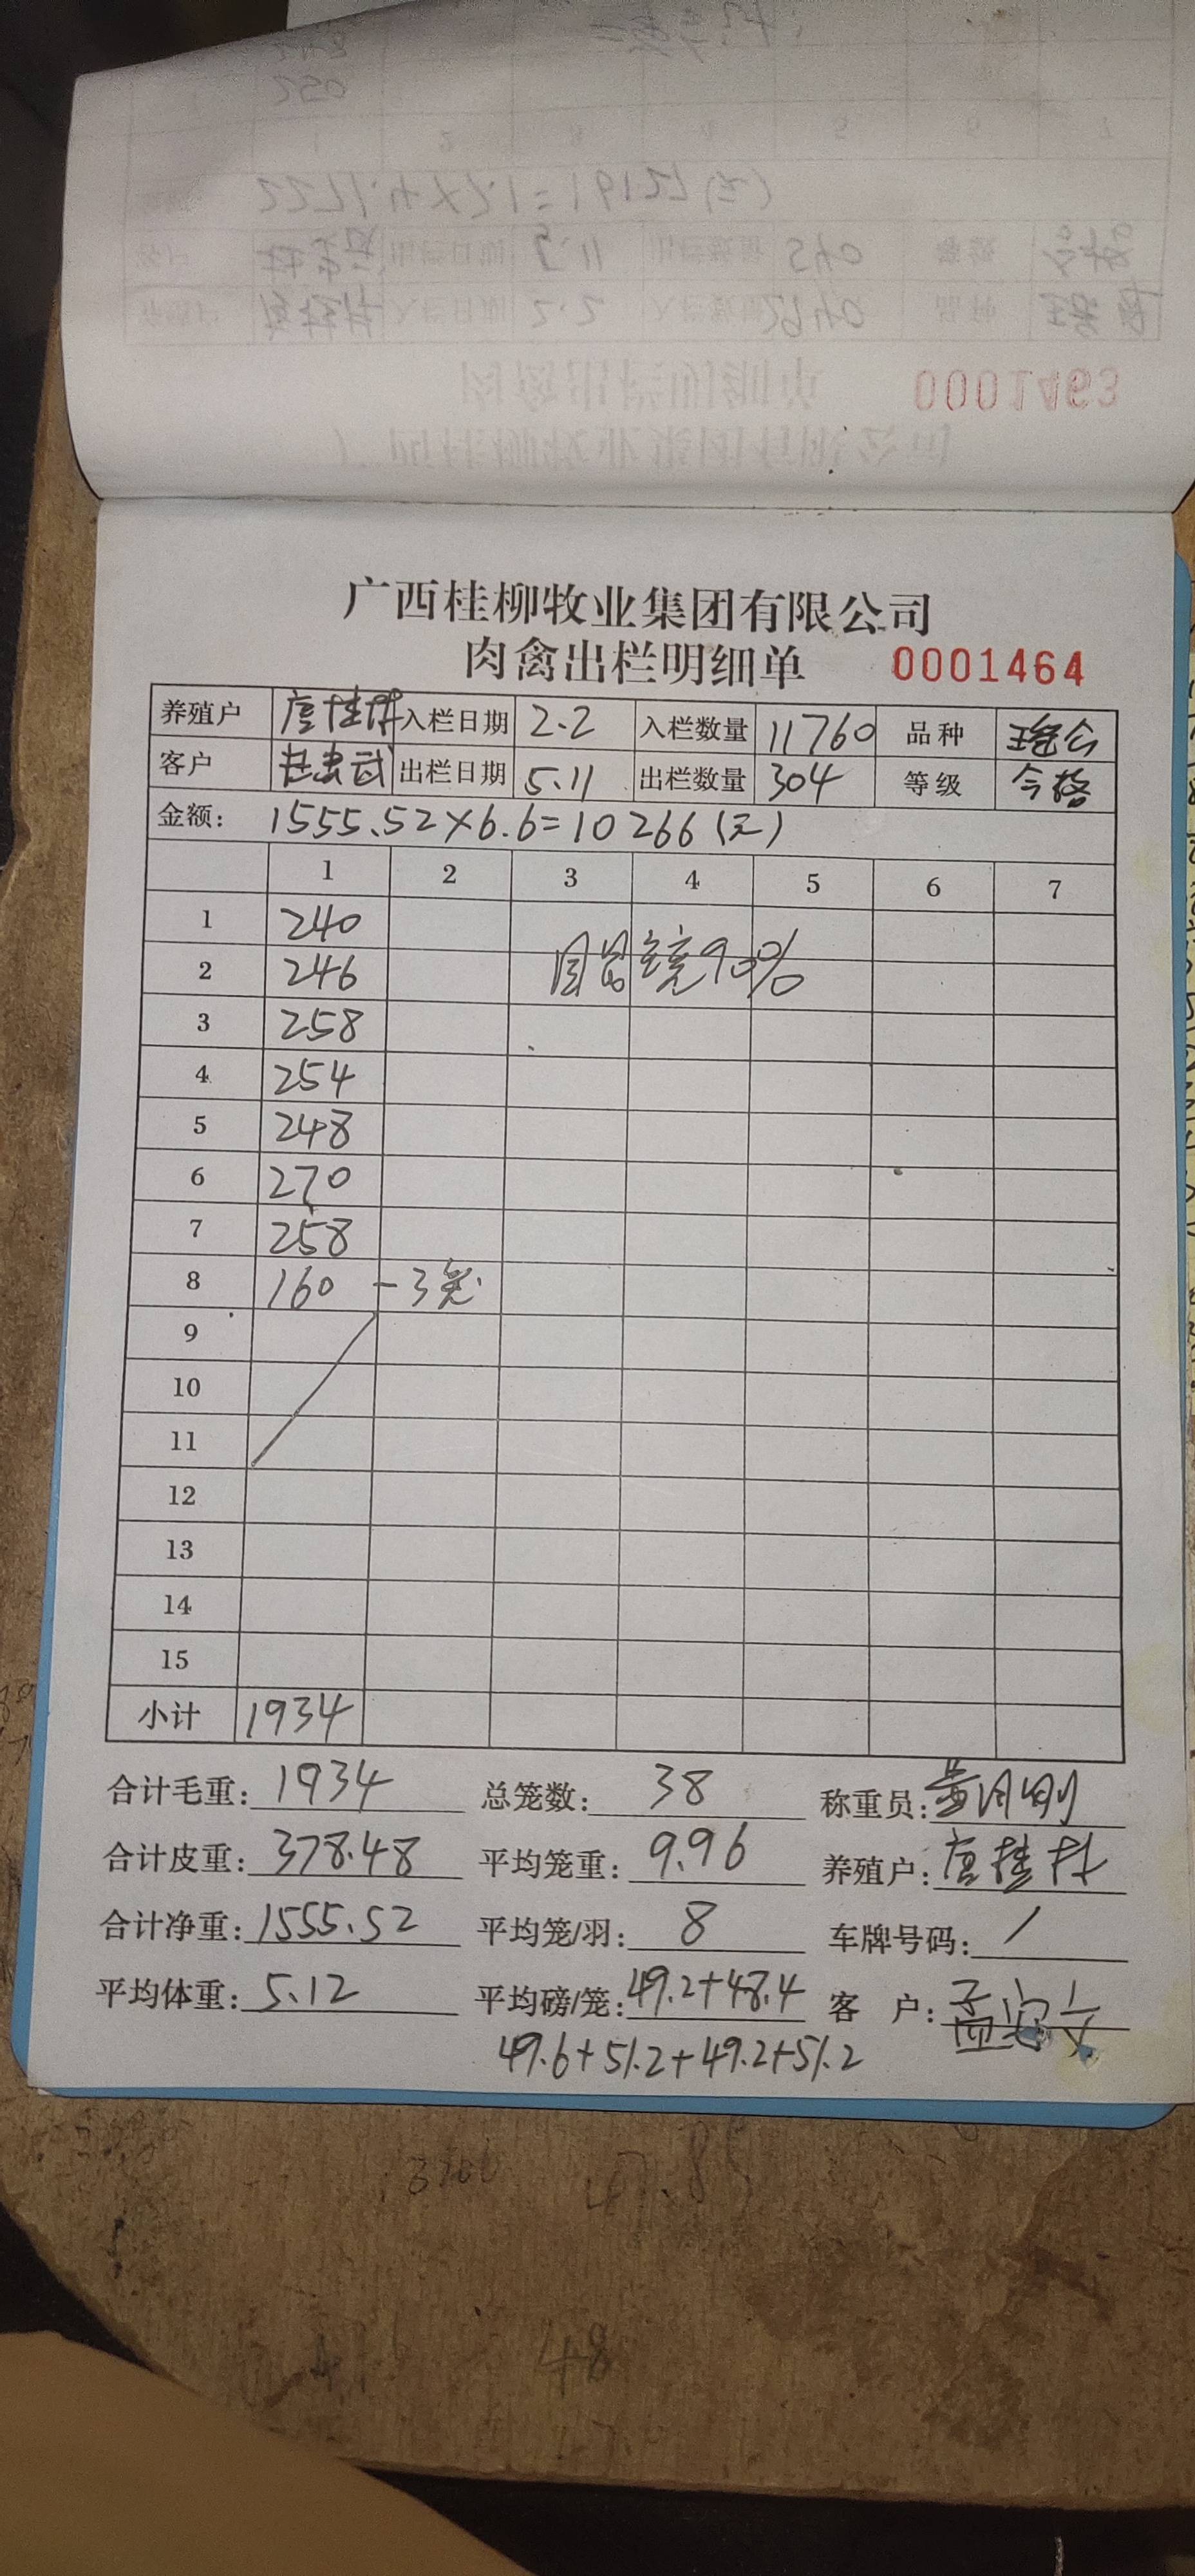 0001463
广西桂柳牧业集团有限公司
肉禽出栏明细单 0001464
养殖户 唐桂林 入栏日期 2.2 入栏数量 11760 品种 瑶公
客户 赵忠武 出栏日期 5.11 出栏数量 304 等级 合格
金额: 1555.52×6.6=10266(元)
1 2 3 4 5 6 7
1 240
2 246 90%
3 258
4 254
5 248
6 270
7 258
8 160 -3笼
9
10
11
12
13
14
15
小计 1934
合计毛重: 1934 总笼数: 38 称重员:
合计皮重: 378.48 平均笼重: 9.96 养殖户: 唐桂林
合计净重: 1555.52 平均笼/羽: 8 车牌号码: /
平均体重: 5.12 平均磅/笼: 49.2+48.4 客 户:
49.6+51.2+49.2+51.2